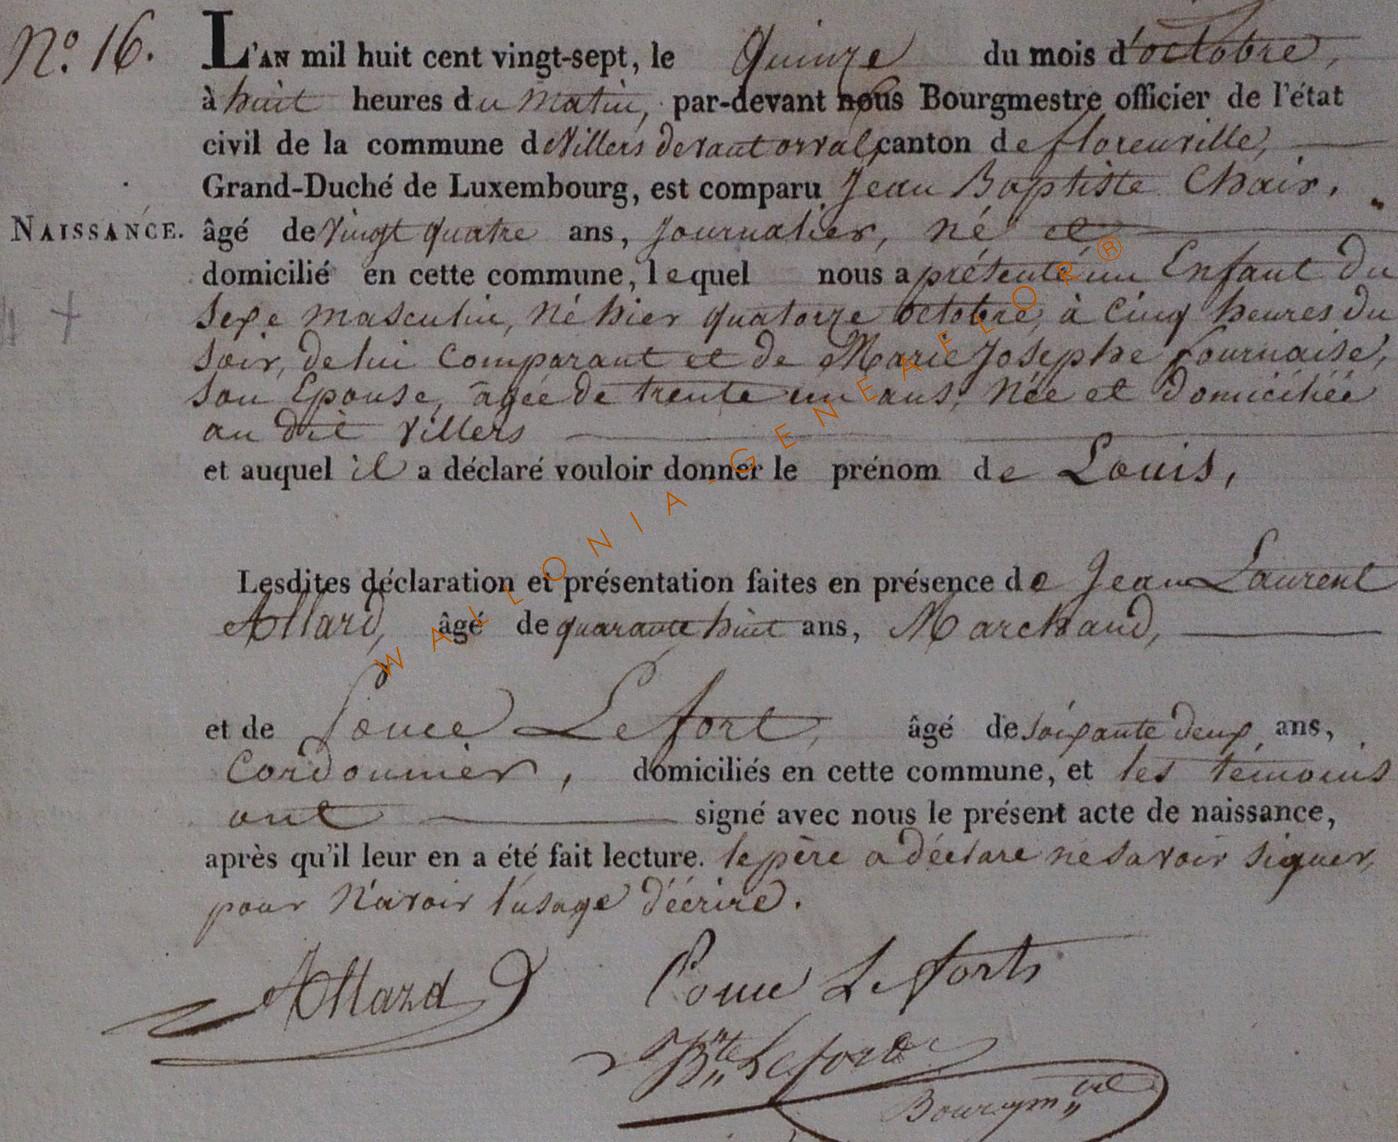 N.º 16.
L'AN mil huit cent vingt-sept, le Quinze du mois d'octobre,
à huit heures du matin, par-devant nous Bourgmestre officier de l'état
civil de la commune de Villers devant orval, canton de florenville,
Grand-Duché de Luxembourg, est comparu Jean Baptiste Chaix,
NAISSANCE. âgé de vingt quatre ans, journalier, né et
domicilié en cette commune, lequel nous a présenté un Enfant du
sexe masculin, né hier quatorze octobre, à cinq heures du
soir, de lui comparant et de Marie Josephe fournaise,
son Epouse, âgée de trente un ans, née et domiciliée
au dit Villers
et auquel il a déclaré vouloir donner le prénom de Louis,
Lesdites déclaration et présentation faites en présence de Jean Laurent
Allard, âgé de quarante huit ans, Marchand,
et de Lefort, âgé de soixante deux ans,
Cordonnier, domiciliés en cette commune, et les témoins
ont signé avec nous le présent acte de naissance,
après qu'il leur en a été fait lecture. le père a déclaré ne savoir signer,
pour n'avoir l'usage d'écrire.
Allard Leforts
Bte Lefort
Bourgmtre
WALLONIA-GENEAFLOR®